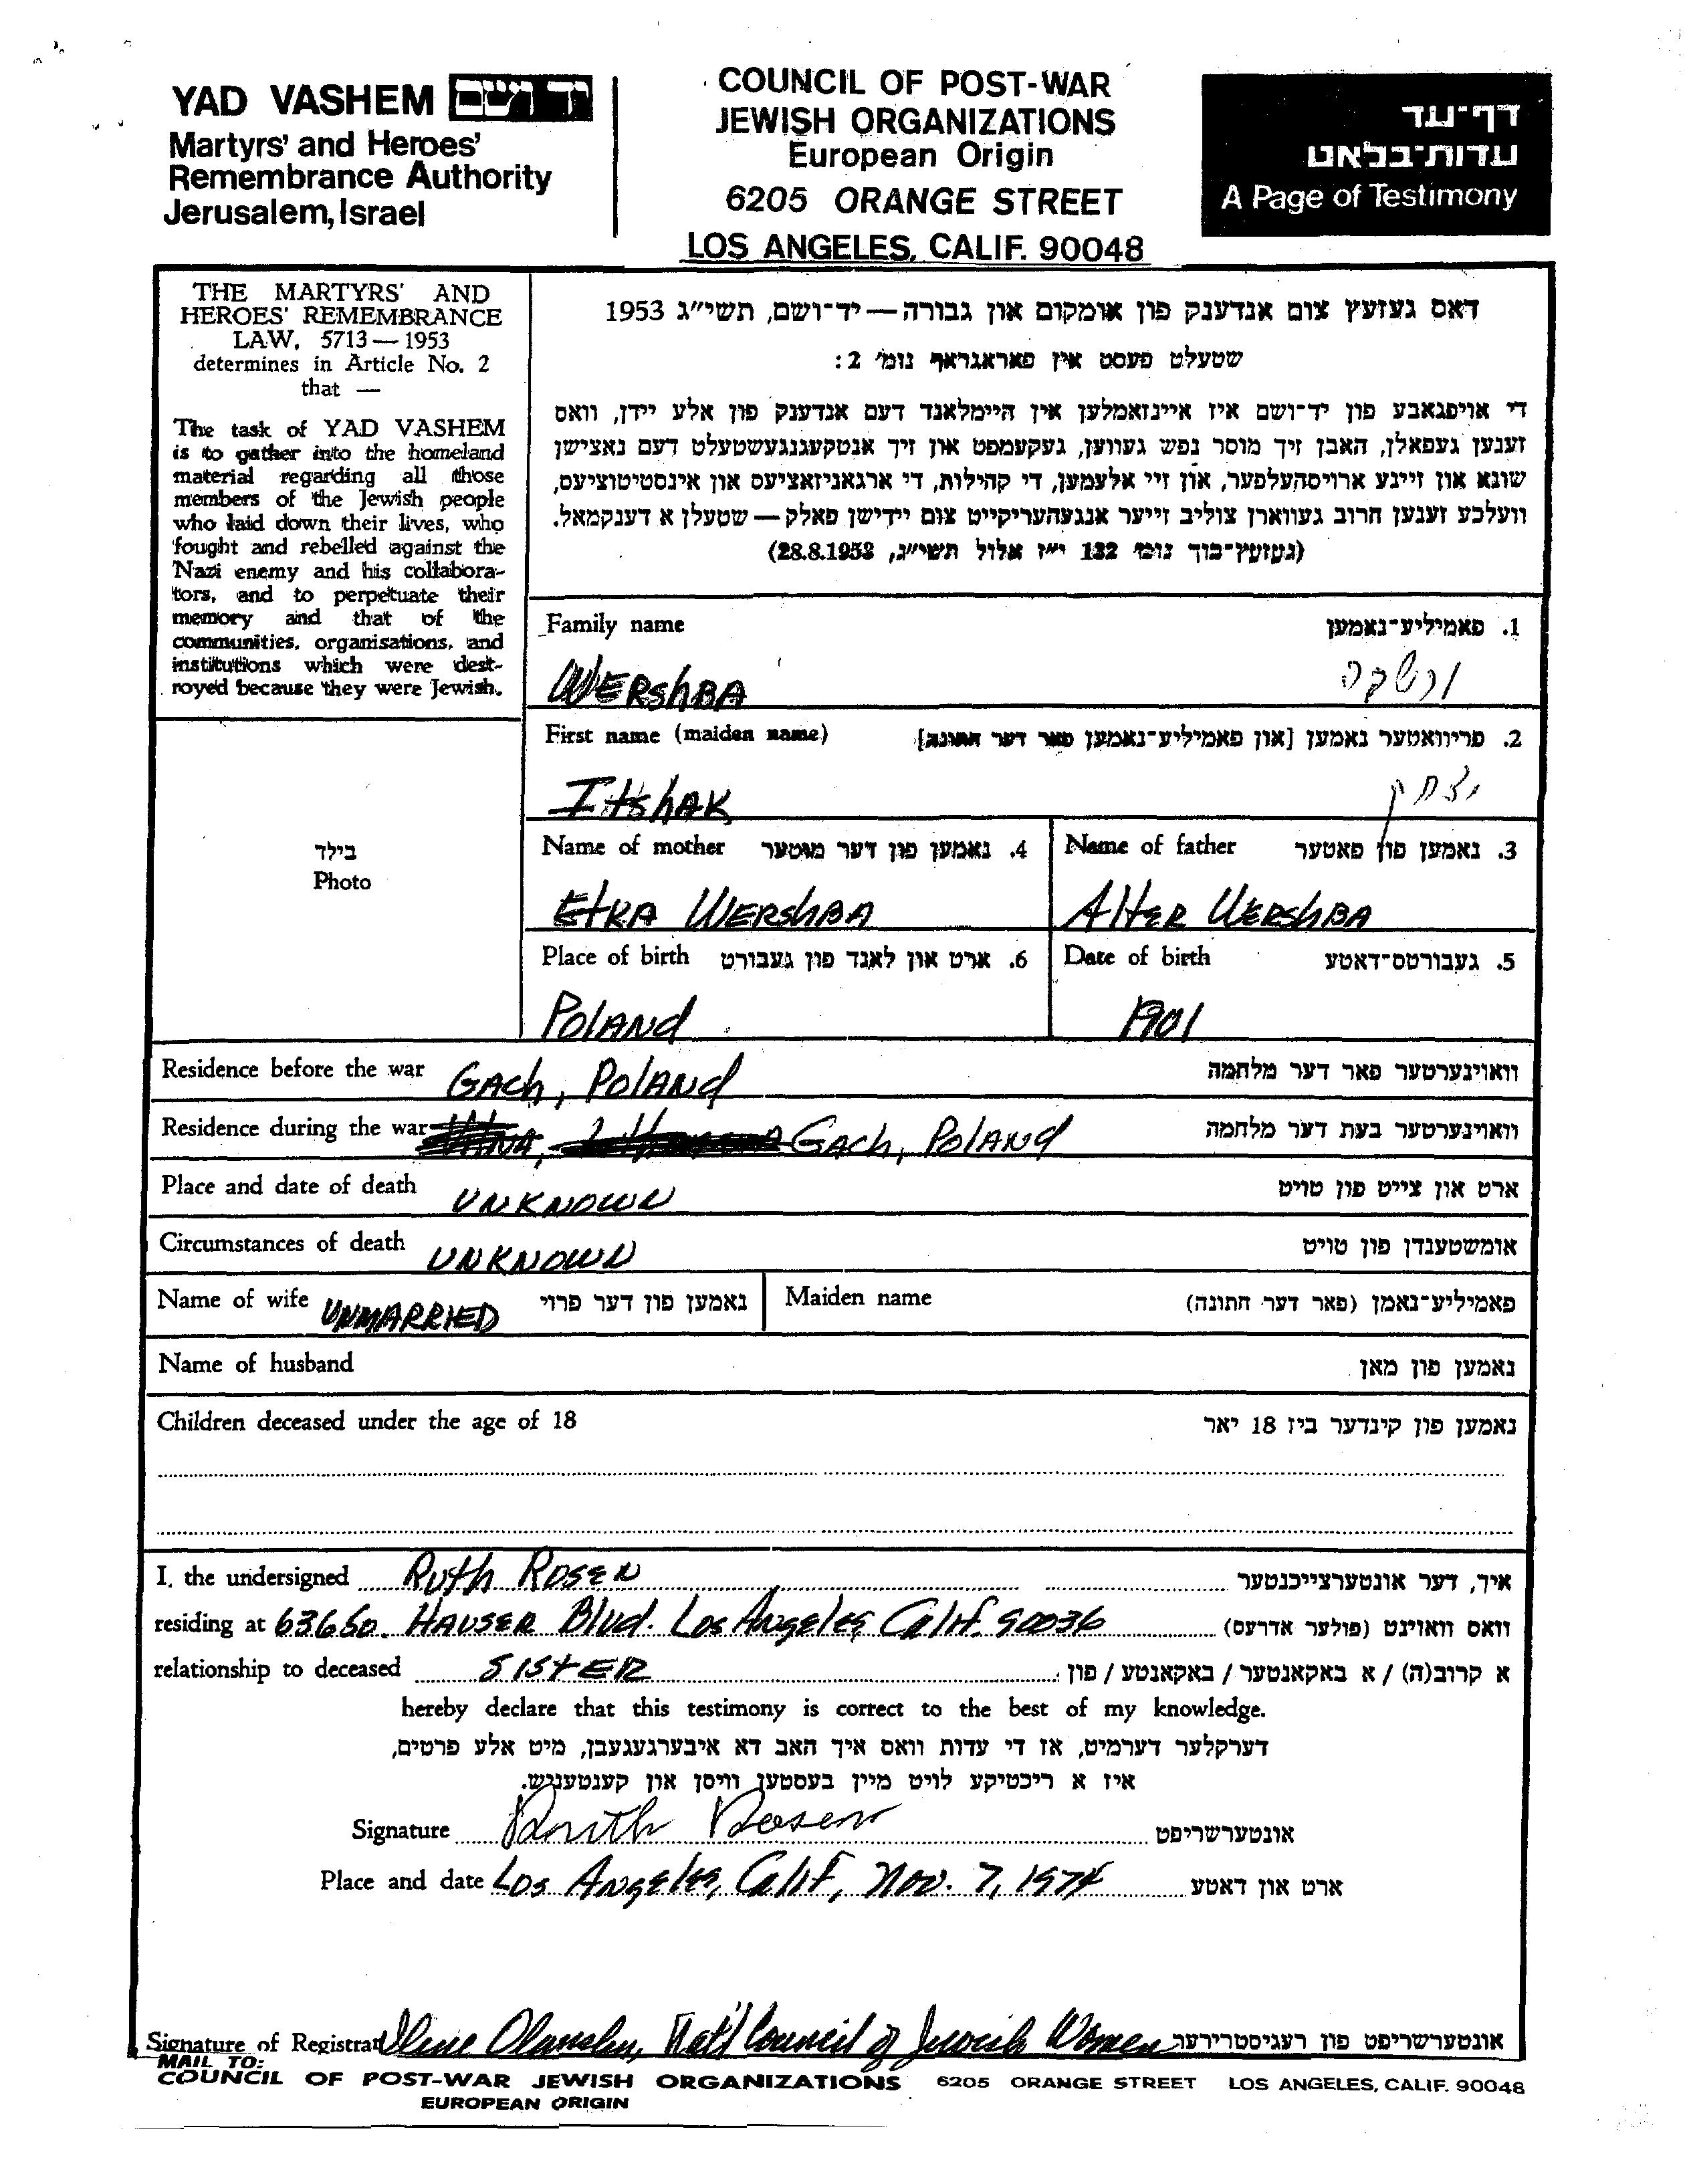 YAD VASHEM יד ושם
Martyrs' and Heroes'
Remembrance Authority
Jerusalem, Israel
COUNCIL OF POST-WAR
JEWISH ORGANIZATIONS
European Origin
6205 ORANGE STREET
LOS ANGELES, CALIF. 90048
דף-עד
עדות-בלאט
A Page of Testimony
THE MARTYRS' AND
HEROES' REMEMBRANCE
LAW, 5713 — 1953
determines in Article No. 2
that —
The task of YAD VASHEM
is to gather into the homeland
material regarding all those
members of the Jewish people
who laid down their lives, who
fought and rebelled against the
Nazi enemy and his collabora-
tors, and to perpetuate their
memory and that of the
communities, organisations, and
institutions which were dest-
royed because they were Jewish.
דאס געזעץ צום אנדענק פון אומקום און גבורה — יד-ושם, תשי"ג 1953
שטעלט פעסט אין פאראגראף נומ' 2:
די אויפגאבע פון יד-ושם איז איינזאמלען אין היימלאנד דעם אנדענק פון אלע יידן, וואס
זענען געפאלן, האבן זיך מוסר נפש געווען, געקעמפט און זיך אנטקעגנגעשטעלט דעם נאצישן
שונא און זיינע ארויסהעלפער, און זיי אלעמען, די קהילות, די ארגאניזאציעס און אינסטיטוציעס,
וועלכע זענען חרוב געווארן צוליב זייער אנגעהעריקייט צום יידישן פאלק — שטעלן א דענקמאל.
(געזעץ-בוך נומ' 132 י"ז אלול תשי"ג, 28.8.1953)
Family name 1. פאמיליע-נאמען
WERShBA
First name (maiden name) 2. פריוואטער נאמען [און פאמיליע-נאמען פאר דער חתונה]
ItshAK יצחק
בילד
Photo
Name of mother 4. נאמען פון דער מוטער
EtKA WERShBA
Name of father 3. נאמען פון פאטער
AltER WERShBA
Place of birth 6. ארט און לאנד פון געבורט
POlANd
Date of birth 5. געבורטס-דאטע
1901
Residence before the war GACh, POlANd וואוינערטער פאר דער מלחמה
Residence during the war GACh, POlANd וואוינערטער בעת דער מלחמה
Place and date of death UNKNOWN ארט און צייט פון טויט
Circumstances of death UNKNOWN אומשטענדן פון טויט
Name of wife UNMARRIED נאמען פון דער פרוי
Maiden name פאמיליע-נאמן (פאר דער חתונה)
Name of husband נאמען פון מאן
Children deceased under the age of 18 נאמען פון קינדער ביז 18 יאר
I, the undersigned Ruth ROSEN איך, דער אונטערצייכנטער
residing at 636 So. HAUSER Blvd. Los Angeles Calif. 90036 וואס וואוינט (פולער אדרעס)
relationship to deceased SISTER א קרוב(ה) / א באקאנטער / באקאנטע / פון:
hereby declare that this testimony is correct to the best of my knowledge.
דערקלער דערמיט, אז די עדות וואס איך האב דא איבערגעגעבן, מיט אלע פרטים,
איז א ריכטיקע לויט מיין בעסטען וויסן און קענטעניש.
Signature Ruth Rosen אונטערשריפט
Place and date Los Angeles, Calif, Nov. 7, 1974 ארט און דאטע
Signature of Registrar Nat'l Council of Jewish Women אונטערשריפט פון רעגיסטרירער
MAIL TO:
COUNCIL OF POST-WAR JEWISH ORGANIZATIONS 6205 ORANGE STREET LOS ANGELES, CALIF. 90048
EUROPEAN ORIGIN